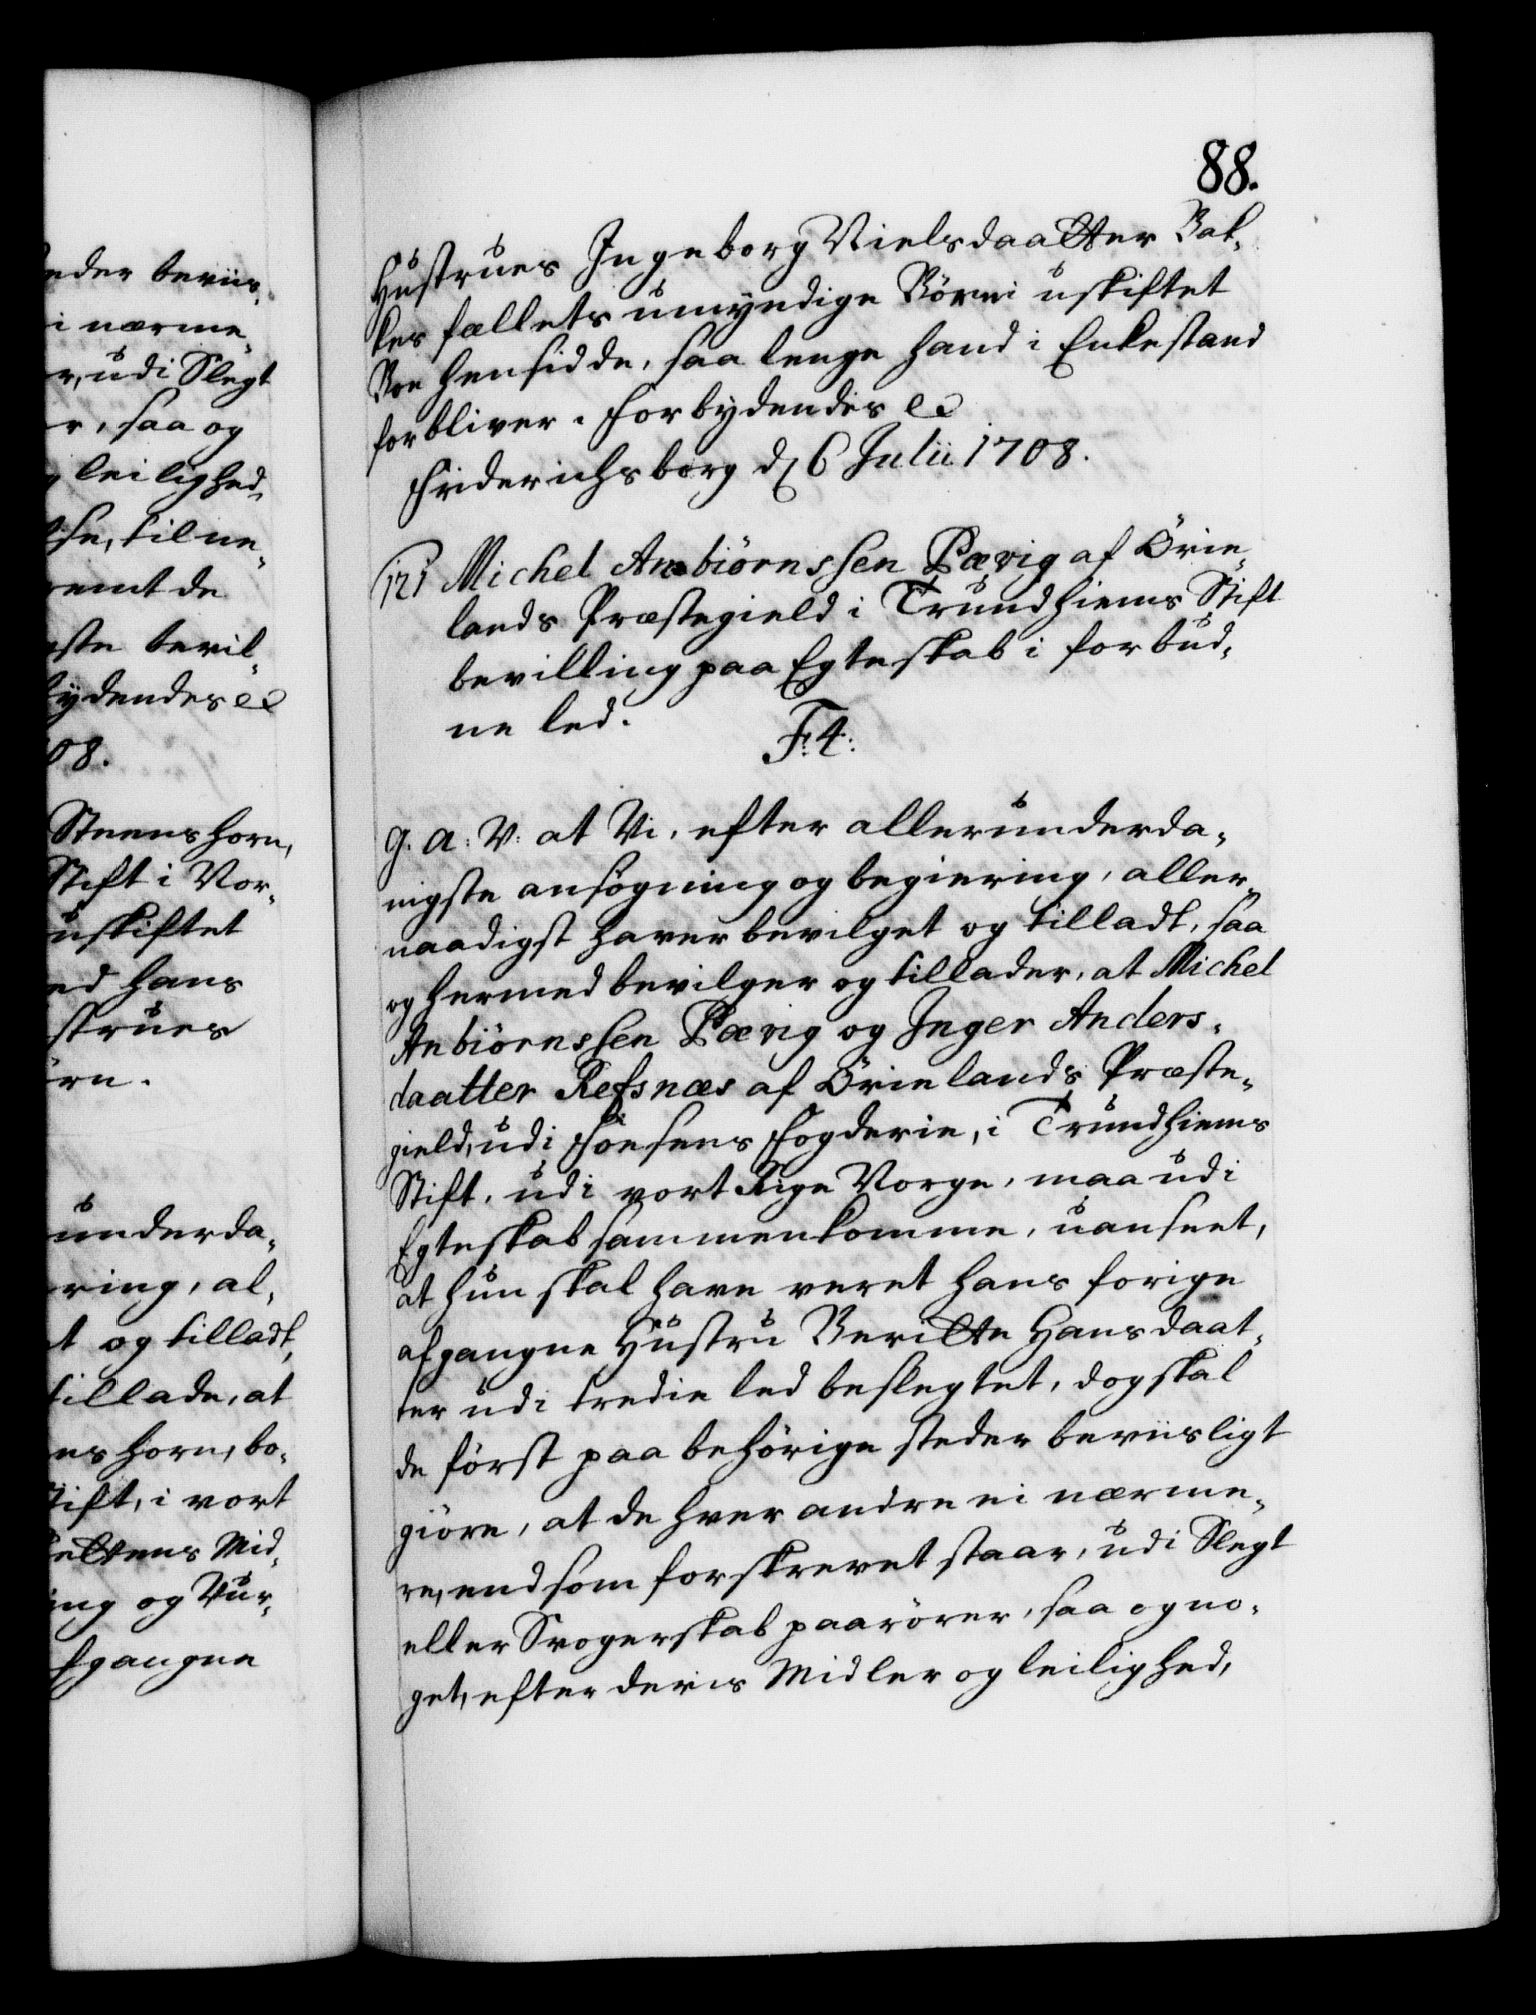 eder beviis-
i nærme-
r, udi Slegt
r, saa og
leilighed,
se, til ne-
emt de
ste bevil-
ydendes etc
08.
Steenshorn,
Stift i Nor-
uskiftet
ed hans
strues
örn.
underda-
ring, al-
t og tilladt,
tillade, at
ns horn, bo-
Stift, i vort
Mid-
ing og Vur-
fgangne
88.
Hustrues Ingeborg Nielsdaatter Bak-
kes fælleds umyndige Börn i uskiftet
Boe hensidde, saa lenge hand i Enkestand
forbliver. Forbydendes etc
Friderichsborg d. 6 Julii 1708.
121 Michel Anbiörnssen Pævig af Örie-
lands Præstegield i Trundhiems Stift
bevilling paa Egteskab i forbud-
ne led.
F: 4:
G. A: V: at Vi, efter allerunderda-
nigste ansögning og begiering, aller-
naadigst haver bevilget og tilladt, saa
og hermed bevilger og tillader, at Michel
Anbiörnssen Pævig og Inger Anders-
daatter Refsnæs af Örielands Præste-
gield, udi Fosens Fogderie, i Trundhiems
Stift, udi vort Rige Norge, maa udi
Egteskab sammenkomme, uanseet,
at hun skal have veret hans forige
afgangne Hustru Beritte Hansdaat-
ter udi tredie led beslegtet, dog skal
de först paa behörige steder beviisligt
giöre, at de hver andre ei nærme-
re, end som forskrevet staar, udi Slegt
eller Svogerskab paarörer, saa og no-
get, efter deris Midler og leilighed,